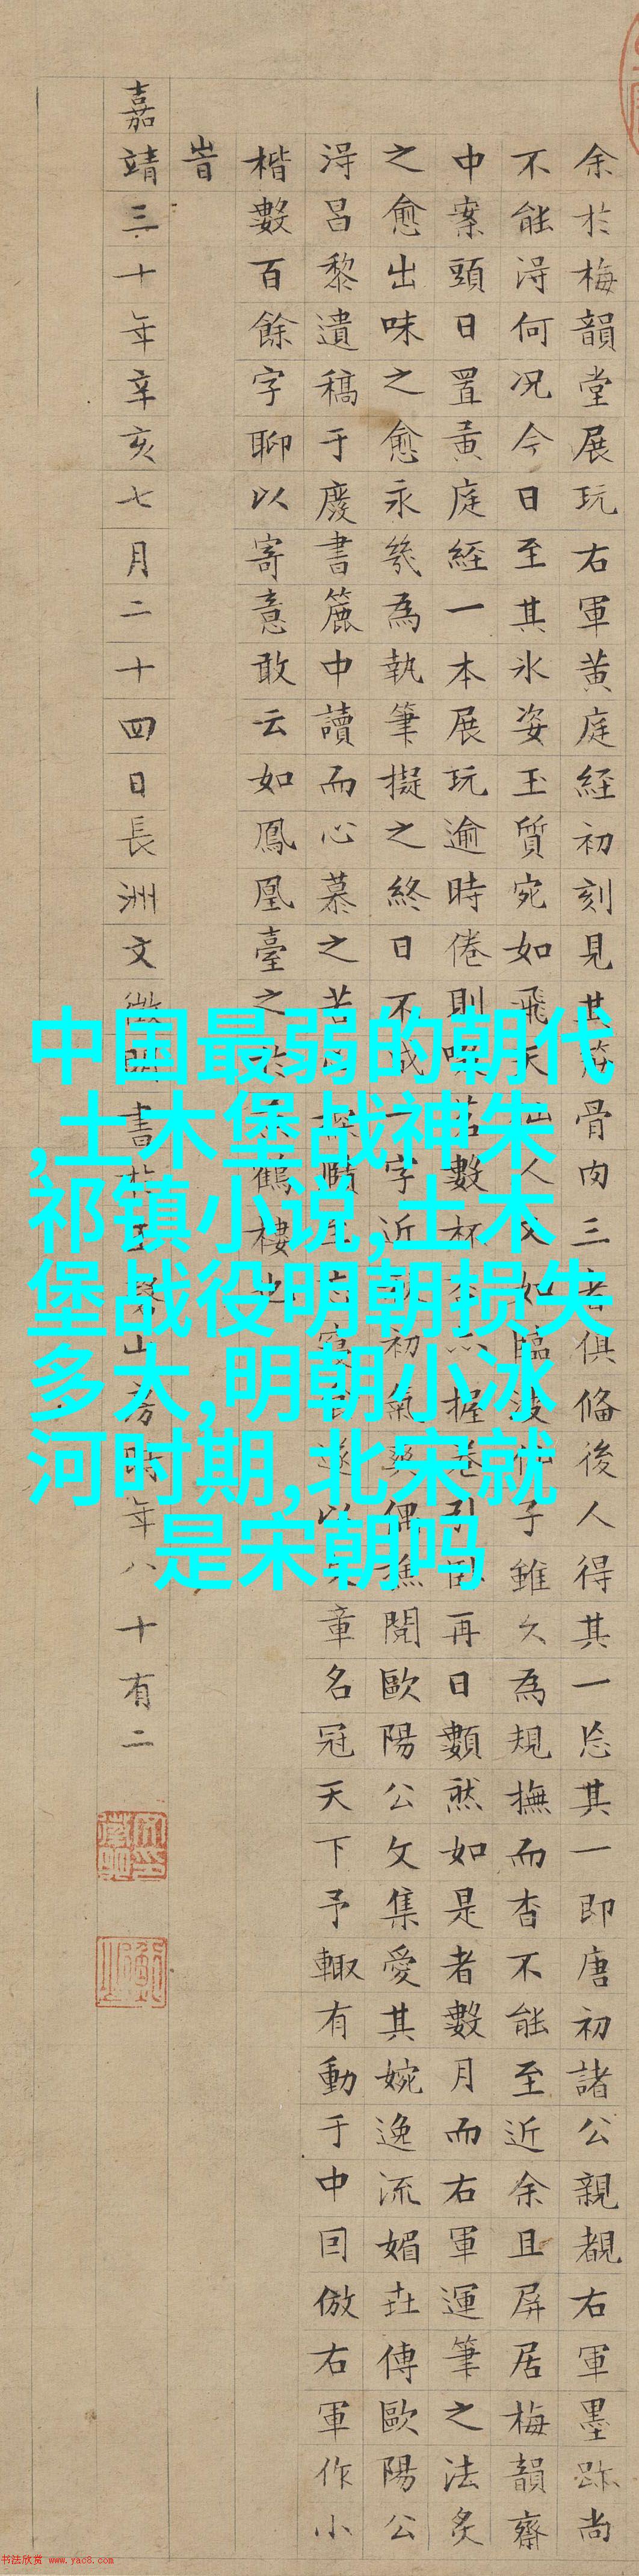 余於梅韻堂展玩右軍黄庭經初刻見其筋骨肉三者俱備後人得其一忘其一即唐初諸公親覩右軍墨跡尚
不能淂何况今日至其氷姿玉質宛如飛天仙人又如臨波仙子雖久為規撫而杳不能至近余且屏居梅韻齋
中案頭日置黄庭經一本展玩逾時倦則啜茗數杯握卷引臥再日數然如是者數月而右軍運筆之法炙
之愈出味之愈永為執筆擬之終日不成一字近初氣爽偶閱歐陽公文集愛其婉逸流媚傳歐陽公
淂呂黎遺稿于廢書簏中讀而心慕之苦探賾至寢遂以章名冠天下予輙有動于中囙倣右軍作小
楷數百餘字聊以寄意敢云如鳳凰臺之於鶴樓也
峕
嘉靖三十年辛亥七月二十四日長洲文徵明書於山房時年八十有二
中国最弱的朝代
,土木堡战神朱
祁镇小说,土木
堡战役明朝损失
多大,明朝小冰
河时期,北宋就
是宋朝吗
书法欣赏 www.yac8.com